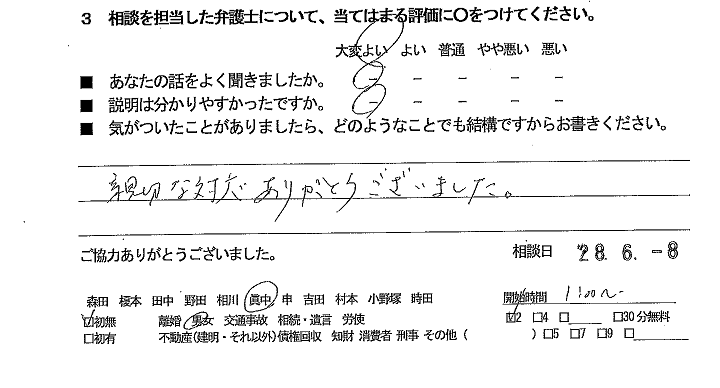 3 相談を担当した弁護士について、当てはまる評価に〇をつけてください。
大変よい よい 普通 やや悪い 悪い
■ あなたの話をよく聞きましたか。 － － － － －
■ 説明は分かりやすかったですか。 － － － － －
■ 気がついたことがありましたら、どのようなことでも結構ですからお書きください。
親切な対応ありがとうございました。
ご協力ありがとうございました。 相談日 '28. 6. -8
森田 榎本 田中 野田 相川 眞中 申 吉田 村本 小野塚 時田 開始時間 1:00～
☑初無 離婚 男女 交通事故 相続・遺言 労使 ☑2 □4 □____ □30分無料
□初有 不動産(建明・それ以外)債権回収 知財 消費者 刑事 その他( ) □5 □7 □9 □____